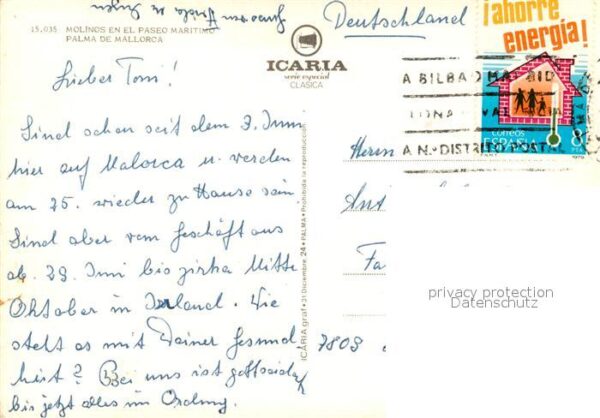 15.035 MOLINOS EN EL PASEO MARITIMO
PALMA DE MALLORCA
ICARIA
serie especial
CLASICA
Deutschland
¡ahorre
energía!
correos
ESPAÑA
8
PTA
1979
A BILBAO MADRID
ZONA VALENCIA
A N.º DISTRITO POSTAL
Lieber Toni!
Sind schon seit dem 3. Juni
hier auf Malorca u. werden
am 25. wieder zu Hause sein
Sind aber vom Geschäft aus
ab 29. Juni bis zirka Mitte
Oktober in Irland. Wie
steht es mit Deiner Gesund
heit? Bei uns ist gottseidank
bis jetzt alles in Ordnung.
ICARIA graf • 31 Diciembre 24 • PALMA • Prohibida la reproducción
Herrn
Ant
Fa
7809
privacy protection
Datenschutz